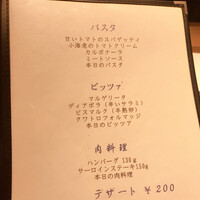 パスタ
甘いトマトのスパゲッティ
小海老のトマトクリーム
カルボナーラ
ミートソース
本日のパスタ
ピッツァ
マルゲリータ
ディアボラ（辛いサラミ）
ビスマルク（半熟卵）
クワトロフォルマッジ
本日のピッツア
肉料理
ハンバーグ 130g
サーロインステーキ150g
本日の肉料理
デザート ¥200